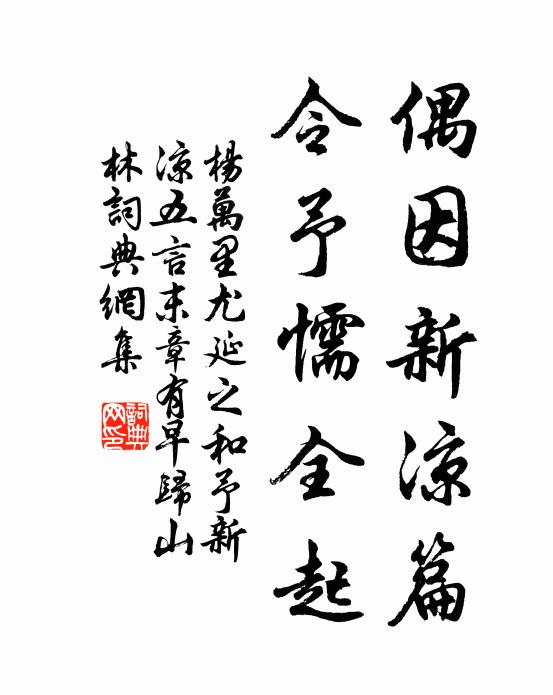 偶因新涼篇
令予懦全起
楊萬里尤延之和予新
涼五言末章有早歸山
林詞典網集
詞典网印